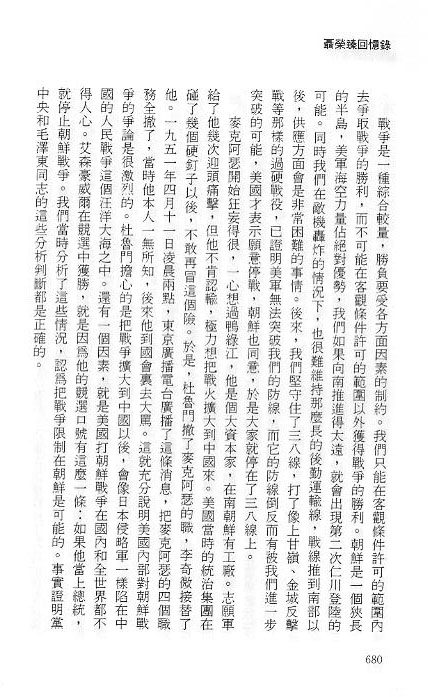 聶榮臻回憶錄
戰爭是一種綜合較量，勝負要受各方面因素的制約。我們只能在客觀條件許可的範圍內
去爭取戰爭的勝利，而不可能在客觀條件許可的範圍以外獲得戰爭的勝利。朝鮮是一個狹長
的半島，美軍海空力量佔絕對優勢，我們如果向南推進得太遠，就會出現第二次仁川登陸的
可能。同時我們在敵機轟炸的情況下，也很難維持那麼長的後勤運輸線，戰線推到南部以
後，供應方面會是非常困難的事情。後來，我們堅守住了三八線，打了像上甘嶺、金城反擊
戰等那樣的過硬戰役，已證明美軍無法突破我們的防線，而它的防線倒反而有被我們進一步
突破的可能，美國才表示願意停戰，朝鮮也同意，於是大家就停在了三八線上。
麥克阿瑟開始狂妄得很，一心想過鴨綠江，他是個大資本家，在南朝鮮有工廠。志願軍
給了他幾次迎頭痛擊，但他不肯認輸，極力想把戰火擴大到中國來。美國當時的統治集團在
碰了幾個硬釘子以後，不敢再冒這個險。於是，杜魯門撤了麥克阿瑟的職，李奇微接替了
他。一九五一年四月十一日凌晨兩點，東京廣播電台廣播了這條消息，把麥克阿瑟的四個職
務全撤了，當時他本人一無所知，後來他到國會裏去大罵。這就充分說明美國內部對朝鮮戰
爭的爭論是很激烈的。杜魯門擔心的是把戰爭擴大到中國以後，會像日本侵略軍一樣陷在中
國的人民戰爭這個汪洋大海之中。還有一個因素，就是美國打朝鮮戰爭在國內和全世界都不
得人心。艾森豪威爾在競選中獲勝，就是因爲他的競選口號有這麼一條：如果他當上總統，
就停止朝鮮戰爭。我們當時分析了這些情況，認爲把戰爭限制在朝鮮是可能的。事實證明黨
中央和毛澤東同志的這些分析判斷都是正確的。
680